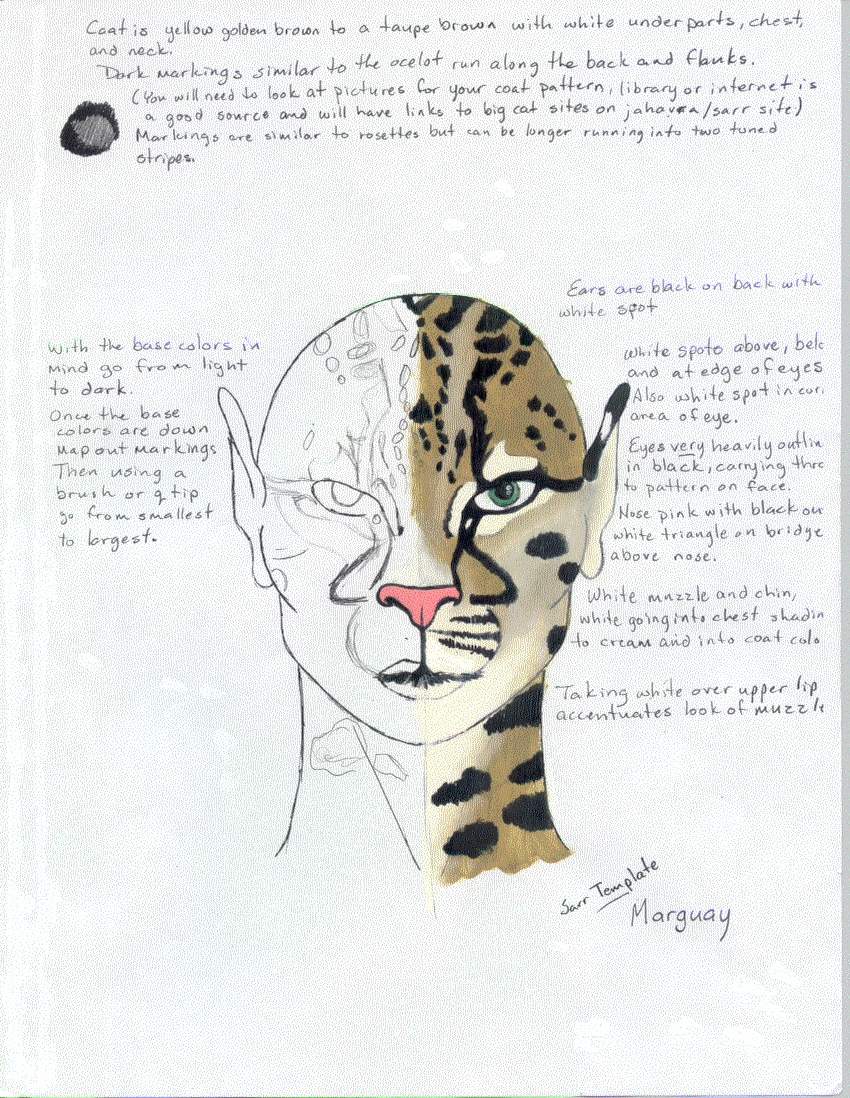 Coat is yellow golden brown to a taupe brown with white under parts, chest,
and neck.
Dark markings similar to the ocelot run along the back and flanks.
(You will need to look at pictures for your coat pattern, library or internet is
a good source and will have links to big cat sites on /sarr site)
Markings are similar to rosettes but can be longer running into two tuned
stripes.
Ears are black on back with
white spot
With the base colors in
mind go from light
to dark.
Once the base
colors are down
map out markings
Then using a
brush or q tip
go from smallest
to largest.
White spots above, belo
and at edge of eyes
Also white spot in cor
area of eye.
Eyes very heavily outlin
in black, carrying thro
to pattern on face.
Nose pink with black ou
white triangle on bridge
above nose.
White muzzle and chin,
white going into chest shadin
to cream and into coat colo
Taking white over upper lip
accentuates look of muzzle
Sarr Template
Marguay